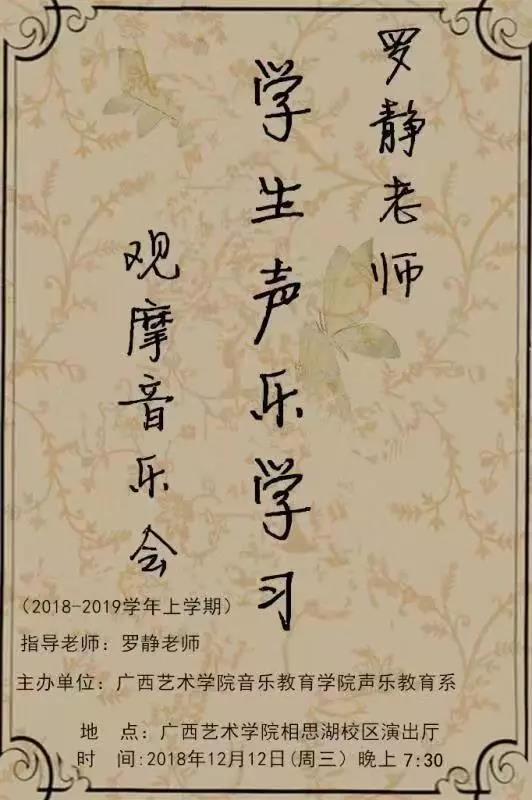 罗静老师
学生声乐学习
观摩音乐会
（2018-2019学年上学期）
指导老师：罗静老师
主办单位：广西艺术学院音乐教育学院声乐教育系
地　点：广西艺术学院相思湖校区演出厅
时　间:2018年12月12日(周三）晚上 7:30